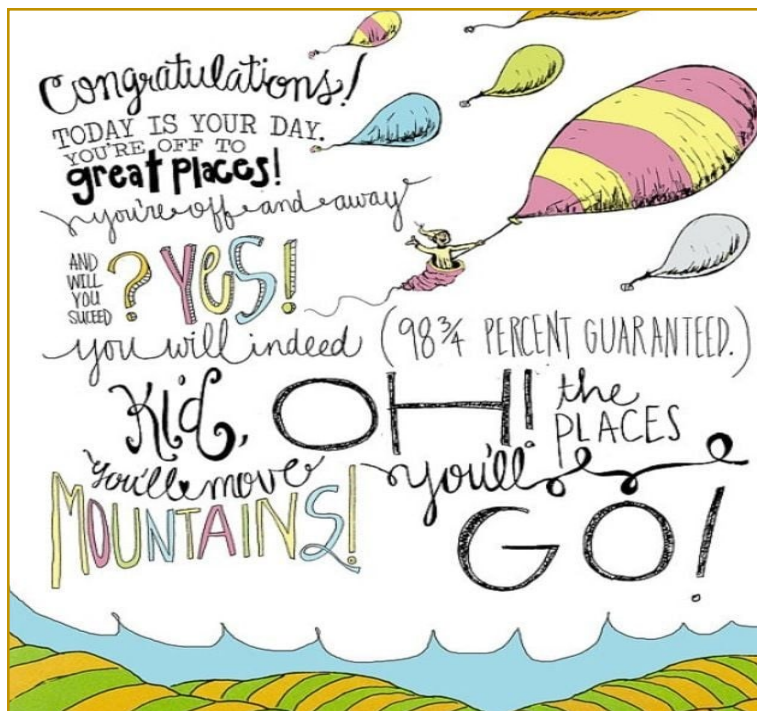 Congratulations!
TODAY IS YOUR DAY.
YOU'RE OFF TO
great places!
you're off and away
AND
WILL
YOU
SUCEED
? YES!
you will indeed
(98 3/4 PERCENT GUARANTEED.)
Kid,
you'll move
MOUNTAINS!
OH! the
PLACES
you'll
GO!